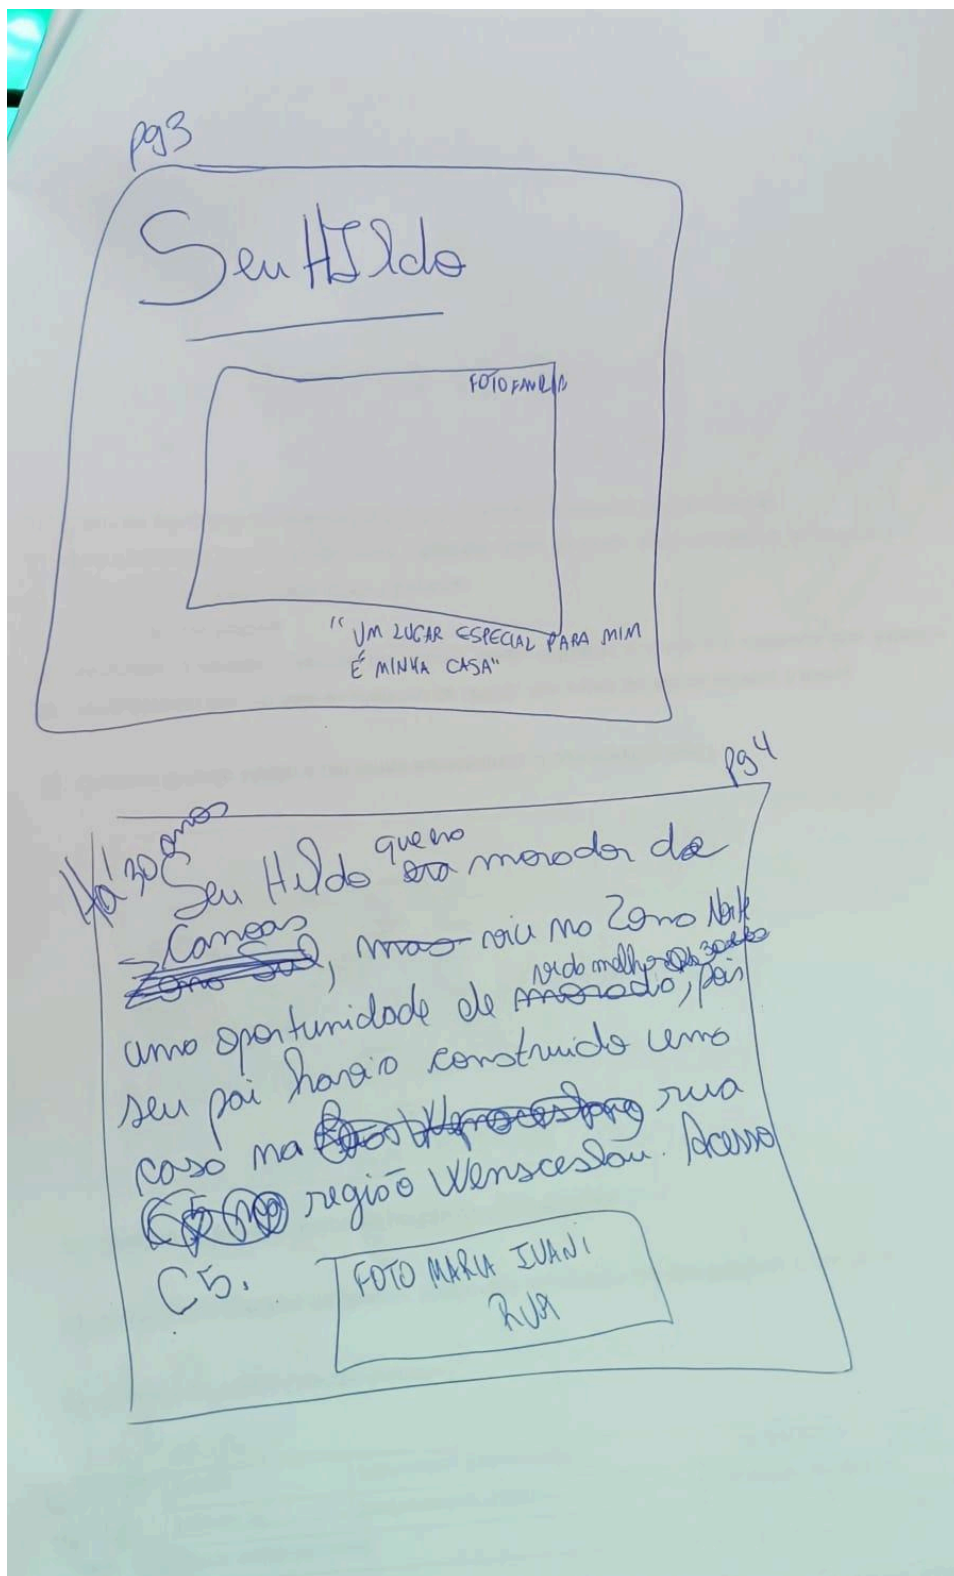 pg3
Seu HIldo
FOTO FAMÍLIA
"UM LUGAR ESPECIAL PARA MIM
É MINHA CASA"
pg4
Há 30 anos
Seu Hildo que era morador de
Canoas, viu na Zona Norte
vida melhor
uma oportunidade de, pois
seu pai havia construido uma
casa na rua
região Wensceslau. Acesso
C5.
FOTO MARIA IVANI
RUA